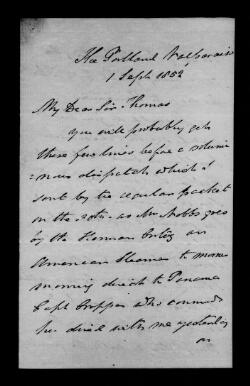 The Portland Valparaiso
1 Sept. 1852
My Dear Sir Thomas
you will probably get
these few lines before a volumi
=nous dispatch which I
sent by the regular packet
on the 30th. as Mr Hobbs goes
by the Hernan Cortez an
American Steamer to morrow
morning direct to Panama
Capt. Cropper who commands
her dined with me yesterday
on